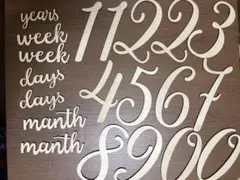 years
week
week
days
days
manth
manth
11223
4567
8900